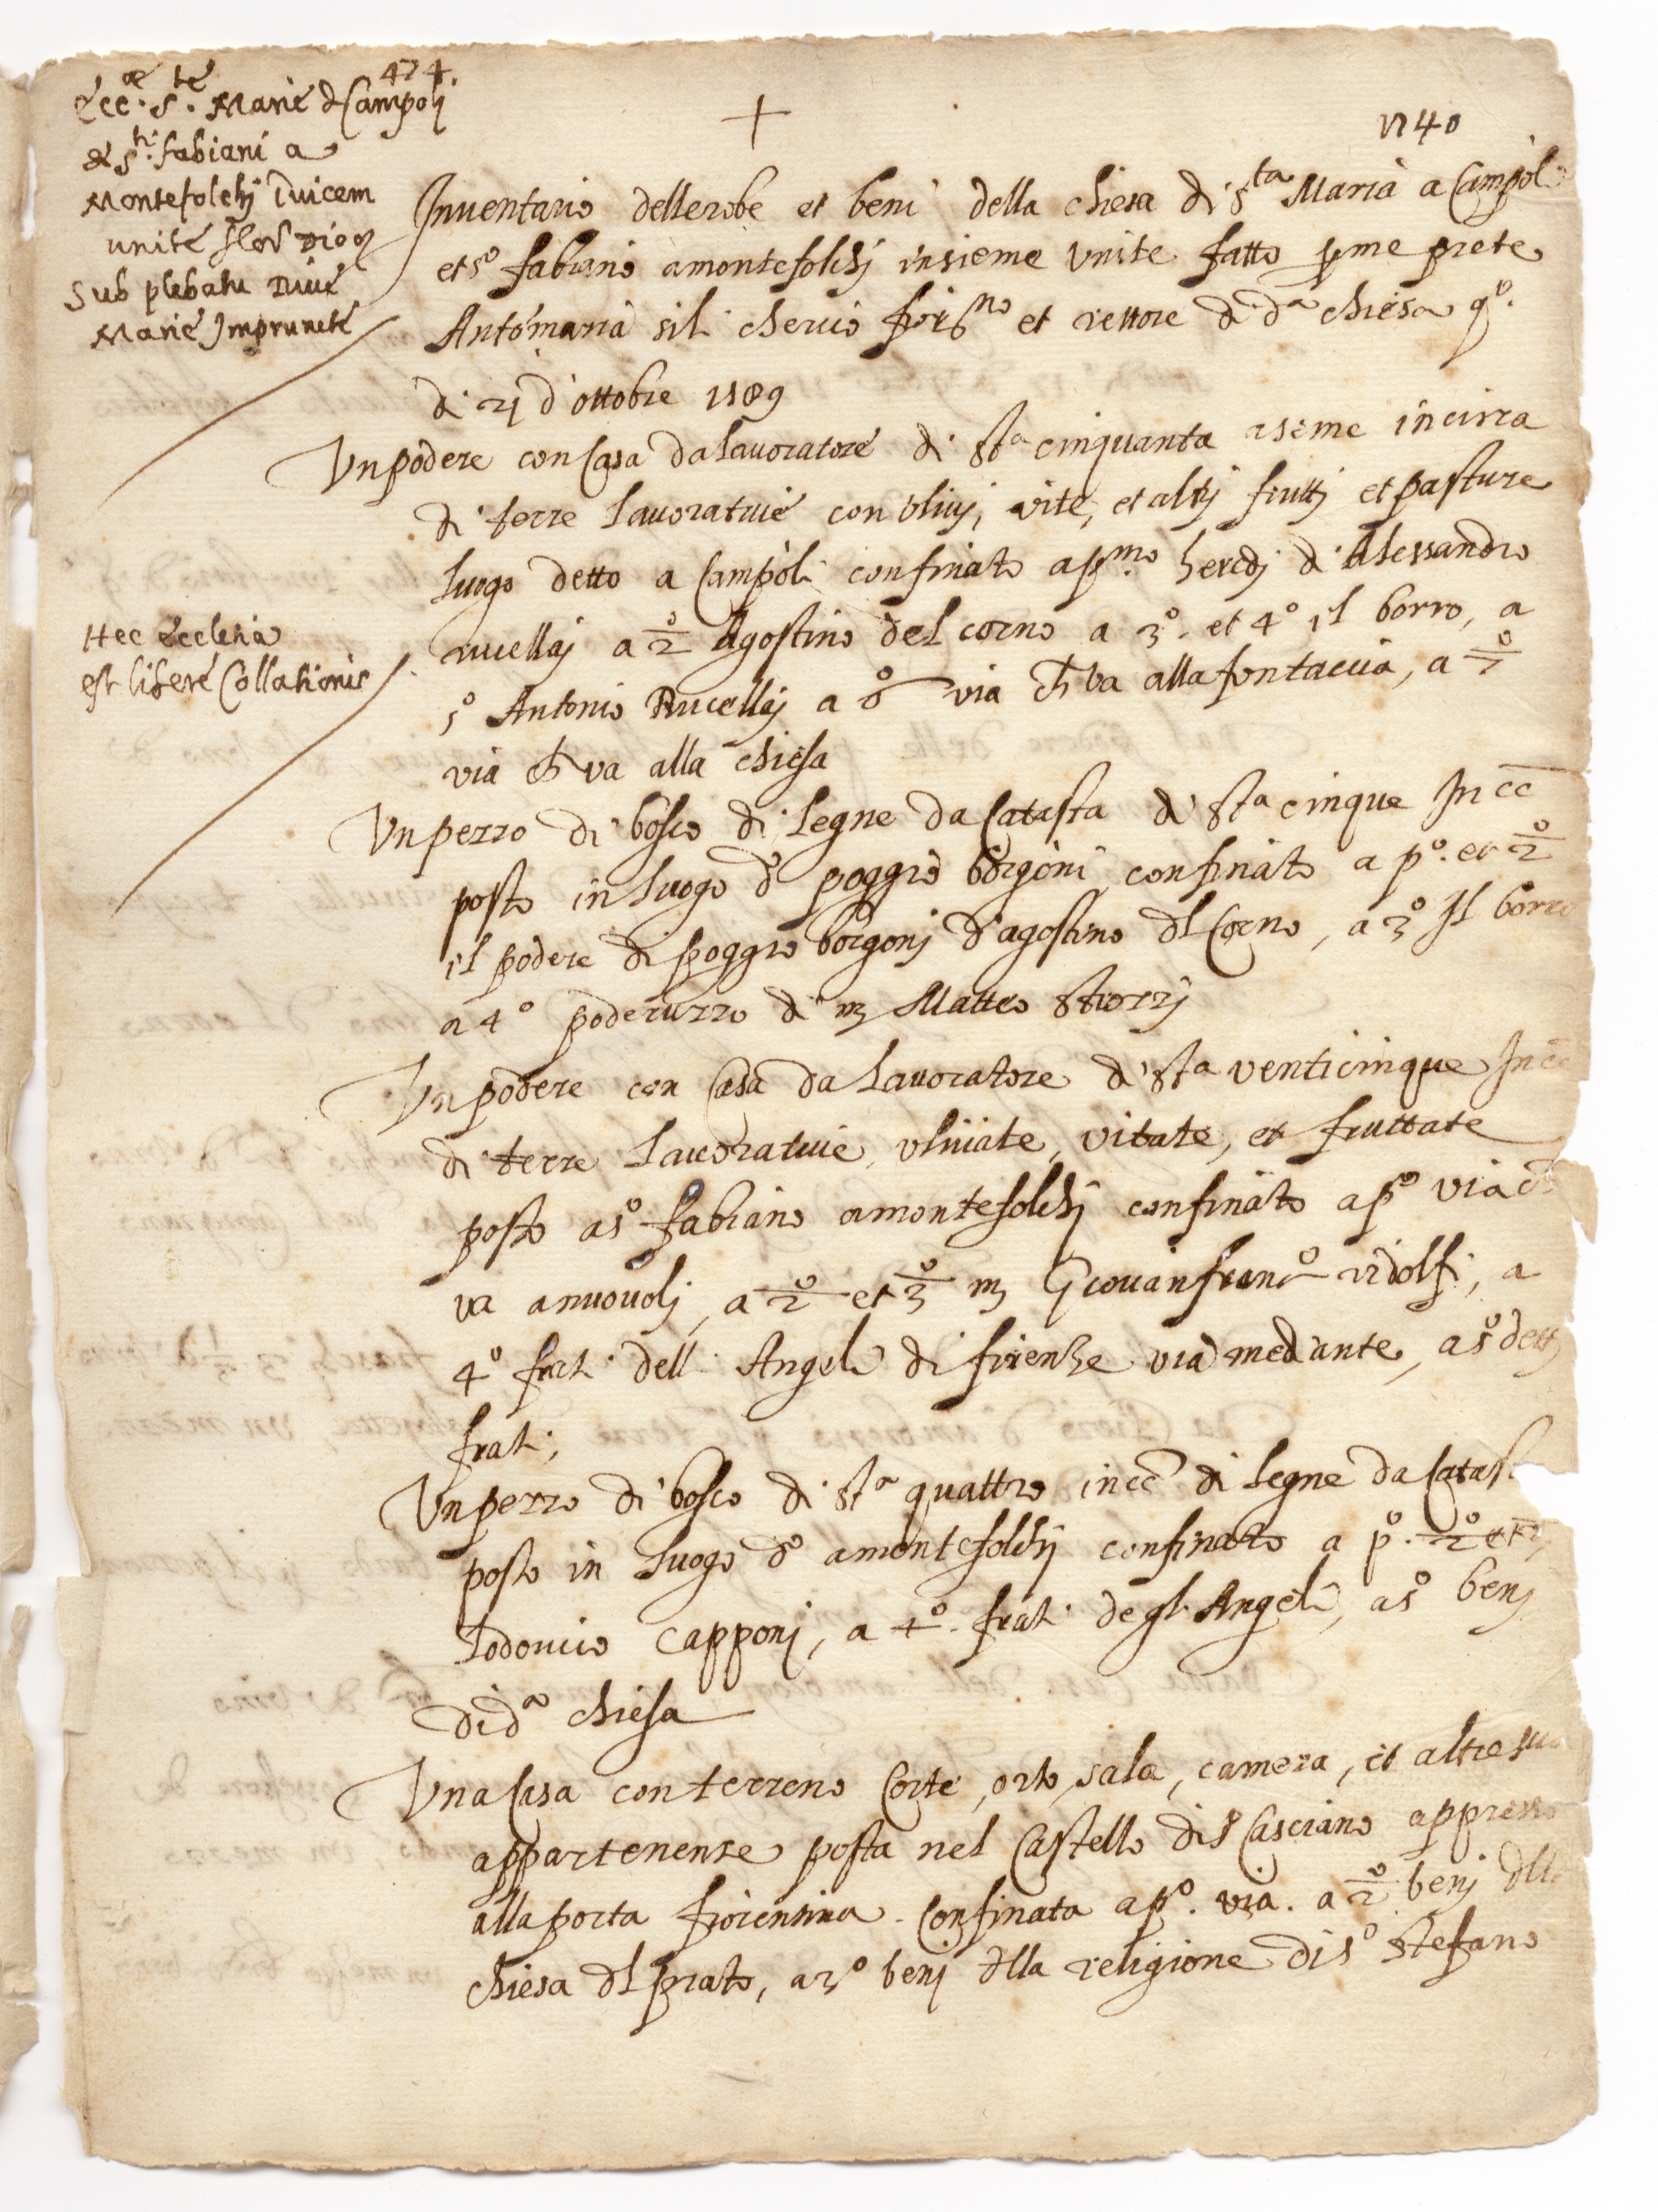 474.
Ecc.æ S.tę Marię d Campoli
& S.ti fabiani a
Montefolchi Invicem
unitę flor dioc
Sub plebatu Divę
Marię Imprunetę
+
n 40
Inventario dellerobe et beni della chiesa di s.ta Maria a Campoli
et s.o fabiano amontefolchj insieme Unite fatto p me prete
Antomaria sil chervio fior.no et rettore d d.a chiesa q.o
di 21 d'ottobre 1589
Un podere con Casa da lavoratore di st.a cinquanta aseme incirca
di terre lavoratuie con Ulivj, vite, et altrj fruttj et pasture
luogo detto a Campoli confinato a p.mo heredj di Alessandro
rucellaj a 2.o Agostino del corno a 3.o et 4.o il borro, a
5.o Antonio Rucellaj a 6.o via ch va alla fontaccia, a 7.o
via ch va alla chiesa
Hec Ecclesia
est liberę Collationis
Un pezzo di bosco di legne da Catasta di st.a cinque In cc.
posto in luogo d.o poggio borgoni confinato a p.o et 2.o
il podere di poggio borgonj d'agostino dl Corno, a 3.o Il borro
a 4.o poderuzzo di m Matteo Strozzj
Un podere con Casa da lavoratore di st.a venticinque In cc
di terre lavoratuie, uliviate, vitate, et fruttate
posto a s.o fabiano amontefolchj confinato a p.o via ch
va anuovolj, a 2.o et 3.o m Giovanfranc.o ridolfi, a
4.o frati dell Angeli di firenze via mediante, a 5.o dettj
frati;
Un pezzo di bosco di st.a quattro in cc. di legne da Catast
posto in luogo d.o amontefolchj confinato a p.o 2.o et 3
Lodovico Capponj, a 4.o frati degl Angeli, a 5.o benj
di d.a chiesa
Una Casa con terreno Corte, orto, sala, camera, et altre sue
appartenenze posta nel Castello di s Casciano appresso
alla porta fiorentina. Confinata a p.o via. a 2.o benj dlla
chiesa dl prato, a 3.o benj dlla religione di s.o Stefano